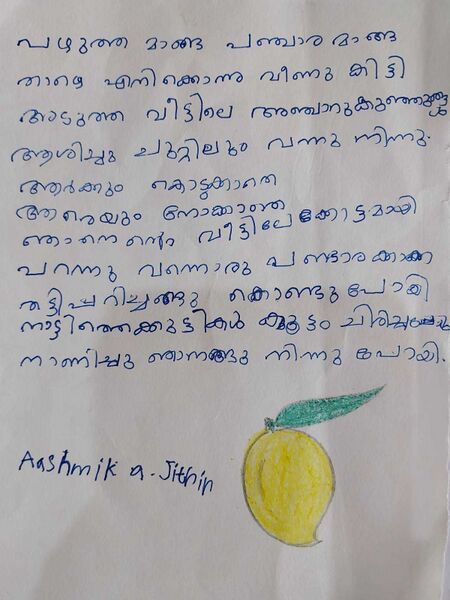 പഴുത്ത മാങ്ങ പഞ്ചാര മാങ്ങ
താഴെ എനിക്കൊന്നു വീണു കിട്ടി
അടുത്ത വീട്ടിലെ അഞ്ചാറുകുഞ്ഞുങ്ങൾ
ആശിച്ചു ചുറ്റിലും വന്നു നിന്നു.
ആർക്കും കൊടുക്കാതെ
ആരെയും നോക്കാതെ
ഞാനെന്റെ വീട്ടിലേക്കോട്ടമായി
പറന്നു വന്നൊരു പണ്ടാരക്കാക്ക
തട്ടിപ്പറിച്ചങ്ങു കൊണ്ടുപോയി
നാട്ടിത്തെക്കുട്ടികൾ കൂട്ടം ചിരിച്ചപ്പോൾ
നാണിച്ചു ഞാനങ്ങു നിന്നു പോയി.
Aashmik a. Jithin